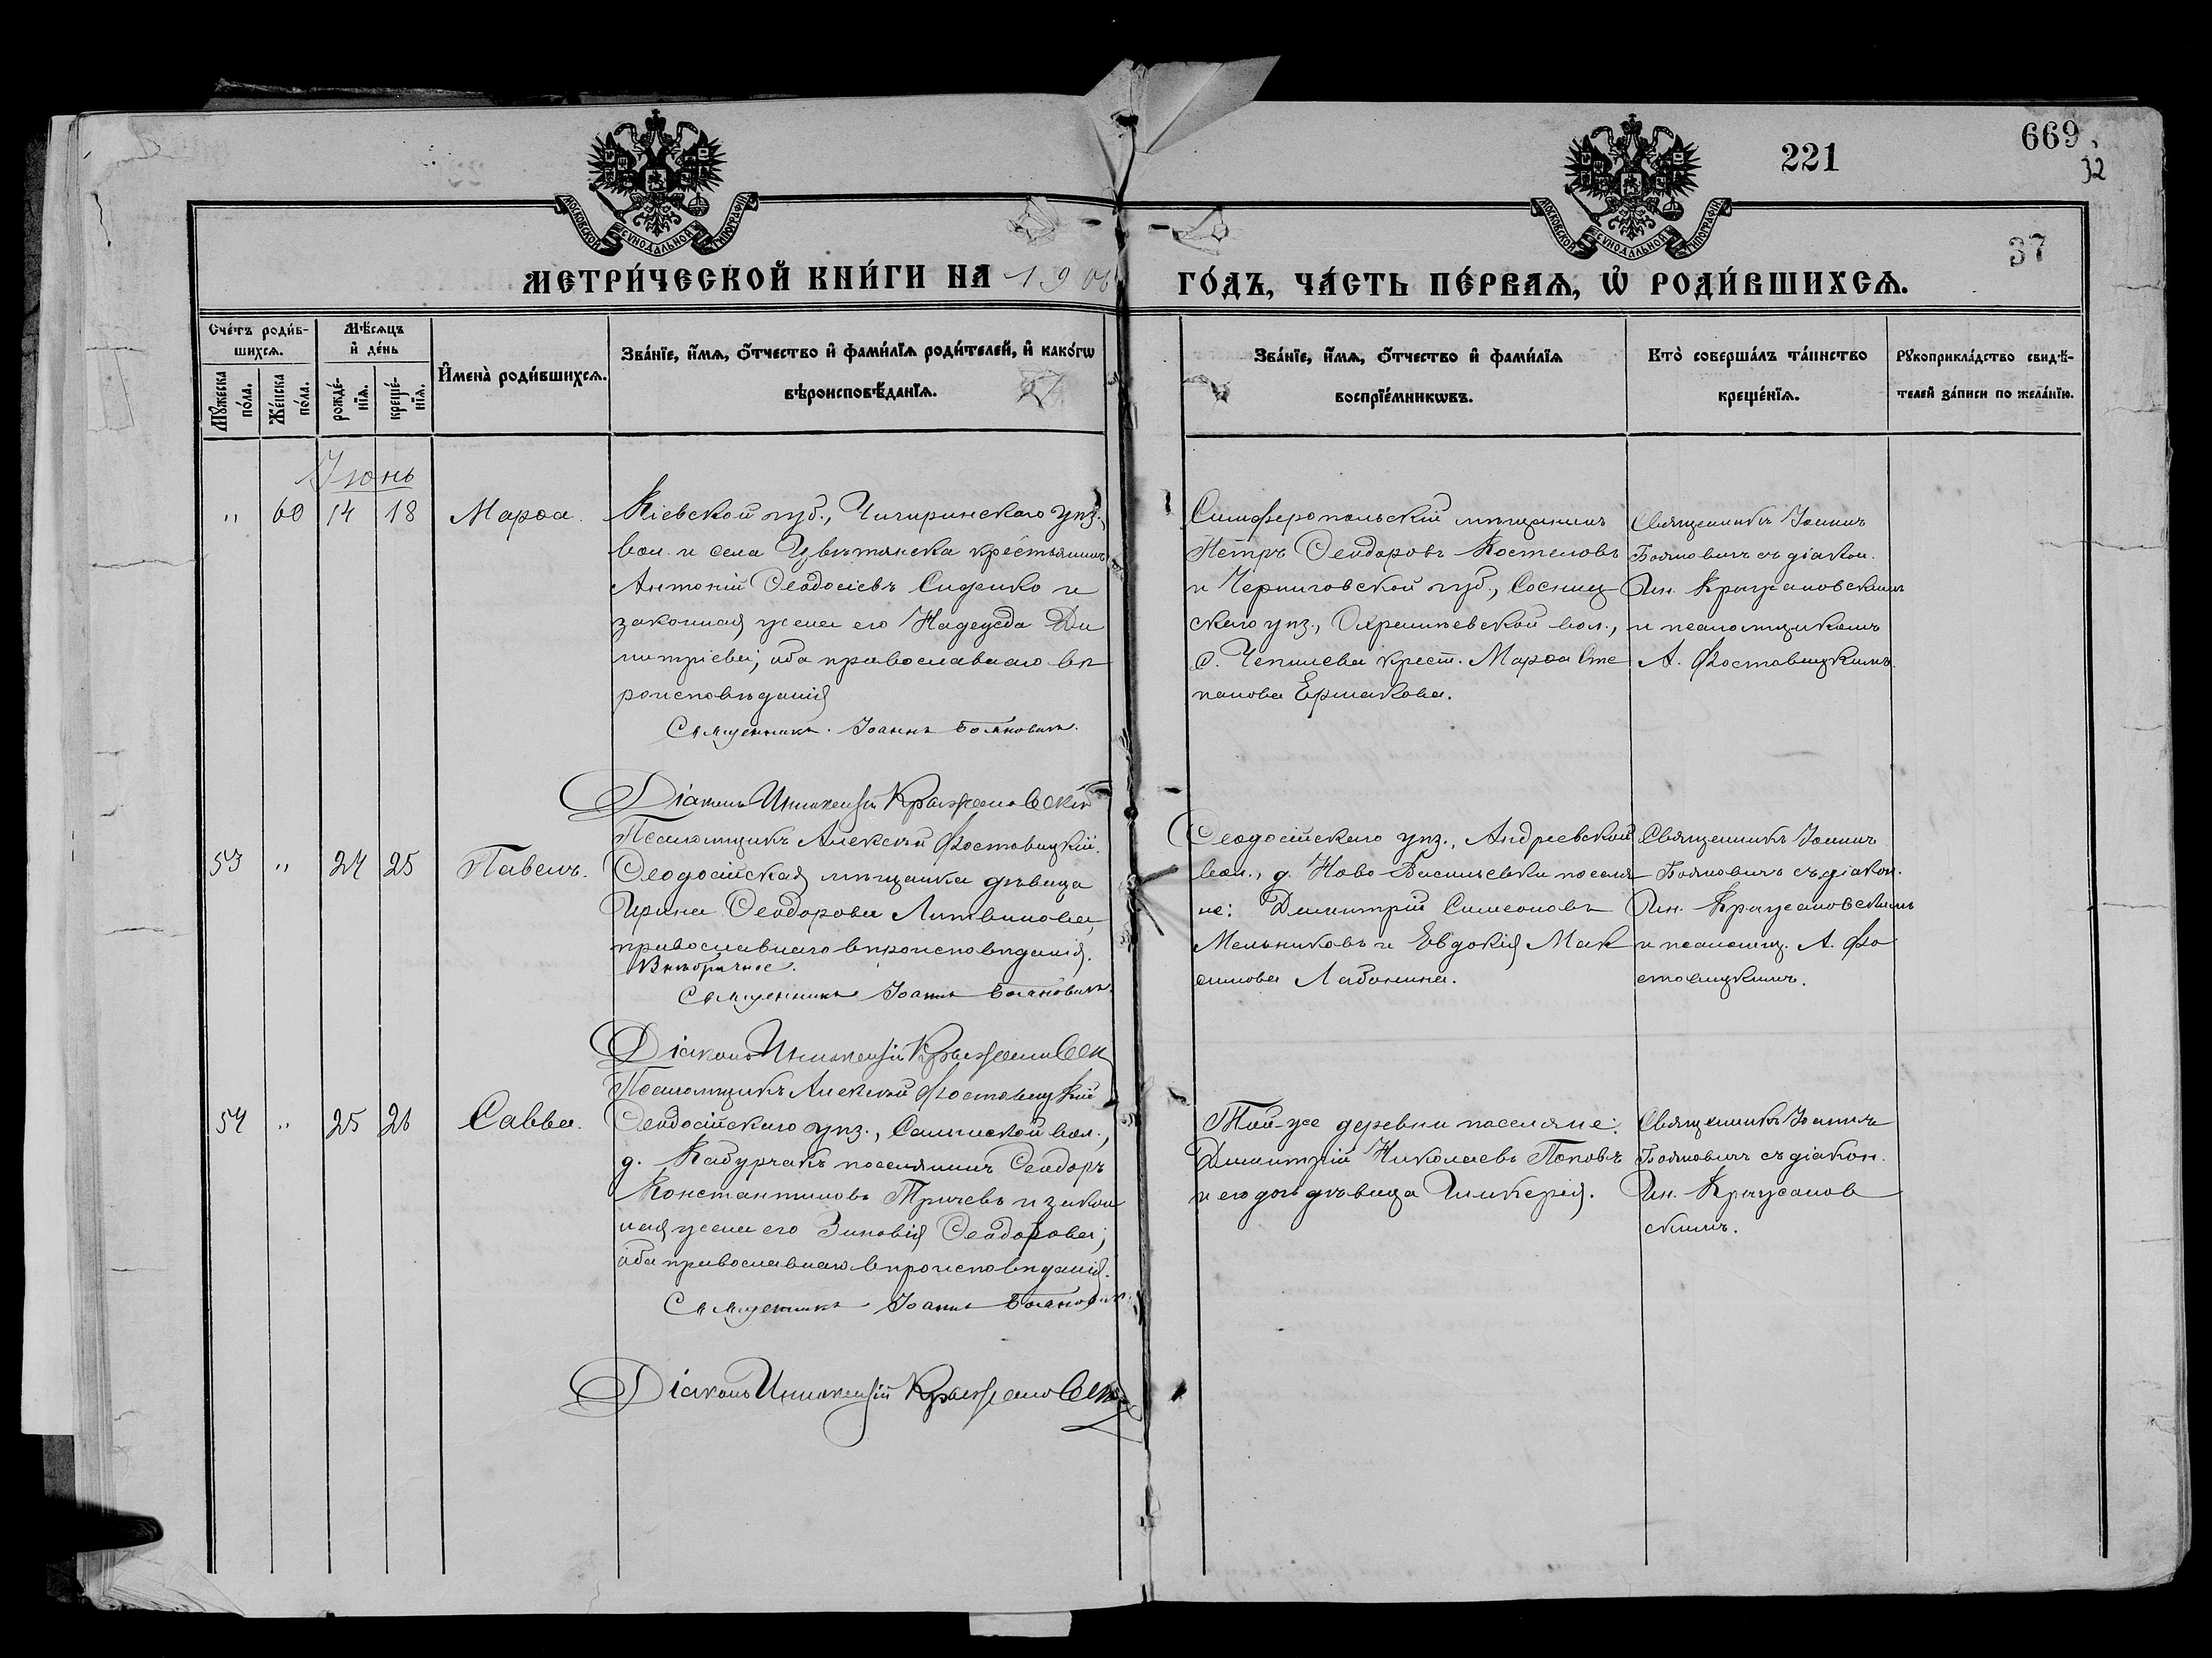 221
669
32
37
МОСКОВСКОЙ СУНОДАЛЬНОЙ ТИПОГРАФІИ
МОСКОВСКОЙ СУНОДАЛЬНОЙ ТИПОГРАФІИ
МЕТРИ́ЧЕСКОЙ КНИ́ГИ НА 1906
ГО́ДЪ, ЧА́СТЬ ПЕ́РВАѦ, Ѡ҆ РОДИ́ВШИХСѦ.
Сче́тъ роди́в-
шихсѧ.
Мѣ́сѧцъ
и҆ де́нь
Мꙋ́жеска
по́ла.
Же́нска
по́ла.
рожде́-
нїѧ.
креще́-
нїѧ.
И҆мена̀ роди́вшихсѧ.
Зва́нїе, и҆́мѧ, ѻ҆́тчество и҆ фами́лїѧ роди́телей, и҆ како́гѡ
вѣроисповѣ́данїѧ.
Зва́нїе, и҆́мѧ, ѻ҆́тчество и҆ фами́лїѧ
воспрїе́мникѡвъ.
Кто̀ соверша́лъ та́инство
креще́нїѧ.
Рꙋкоприкла́дство свидѣ́-
телей за́писи по жела́нїю.
Іюнь
" 60 14 18 Марѳа.
Кіевской губ., Чигиринскаго уѣз.,
вол. и села Цвѣтянска крестьянинъ
Антоній Ѳеодосіевъ Сиденко и
законная жена его Надежда Ди
митріева; оба православнаго вѣ
роисповѣданія
Священникъ Іоаннъ Бояновичъ.
Діаконъ Иннокентій Крыжановскій
Псаломщикъ Алексѣй Фостовицкій.
Симферопольскій мѣщанинъ
Петръ Ѳеодоровъ Костеловъ
и Черниговской губ., Сосниц
скаго уѣз., Охрамѣевской вол.,
с. Чепилева крест. Марѳа Сте
панова Ермакова.
Священникъ Іоаннъ
Бояновичъ съ діакон.
Ин. Крыжановскимъ
и псаломщикомъ
А. Фостовицкимъ.
53 " 24 25 Павелъ.
Ѳеодосійская мѣщанка дѣвица
Ирина Ѳеодорова Литвинова,
православнаго вѣроисповѣданія.
Внѣбрачное.
Священникъ Іоаннъ Бояновичъ.
Діаконъ Иннокентій Крыжановскій
Псаломщикъ Алексѣй Фостовицкій
Ѳеодосійскаго уѣз., Андреевской
вол., д. Ново-Васильевки поселя
не: Димитрій Симеоновъ
Мельниковъ и Евдокія Мак
симова Лабонина.
Священникъ Іоаннъ
Бояновичъ съ діакон.
Ин. Крыжановскимъ
и псаломщ. А. Фо
стовицкимъ.
54 " 25 26 Савва.
Ѳеодосійскаго уѣз., Салынской вол.,
д. Кабурчакъ поселянинъ Ѳеодоръ
Константиновъ Тричевъ и закон
ная жена его Зиновія Ѳеодорова;
оба православнаго вѣроисповѣданія.
Священникъ Іоаннъ Бояновичъ.
Діаконъ Иннокентій Крыжановскій
Той-же деревни поселяне:
Димитрій Николаевъ Поповъ
и его дочь дѣвица Гликерія.
Священникъ Іоаннъ
Бояновичъ съ діакон.
Ин. Крыжанов
скимъ.